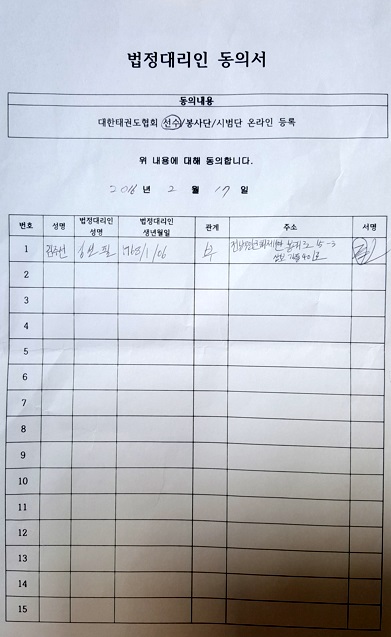 법정대리인 동의서
동의내용
대한태권도협회 선수/봉사단/시범단 온라인 등록
위 내용에 대해 동의합니다.
2016 년 2 월 17 일
번호 성명 법정대리인 성명 법정대리인 생년월일 관계 주소 서명
1 부
2
3
4
5
6
7
8
9
10
11
12
13
14
15